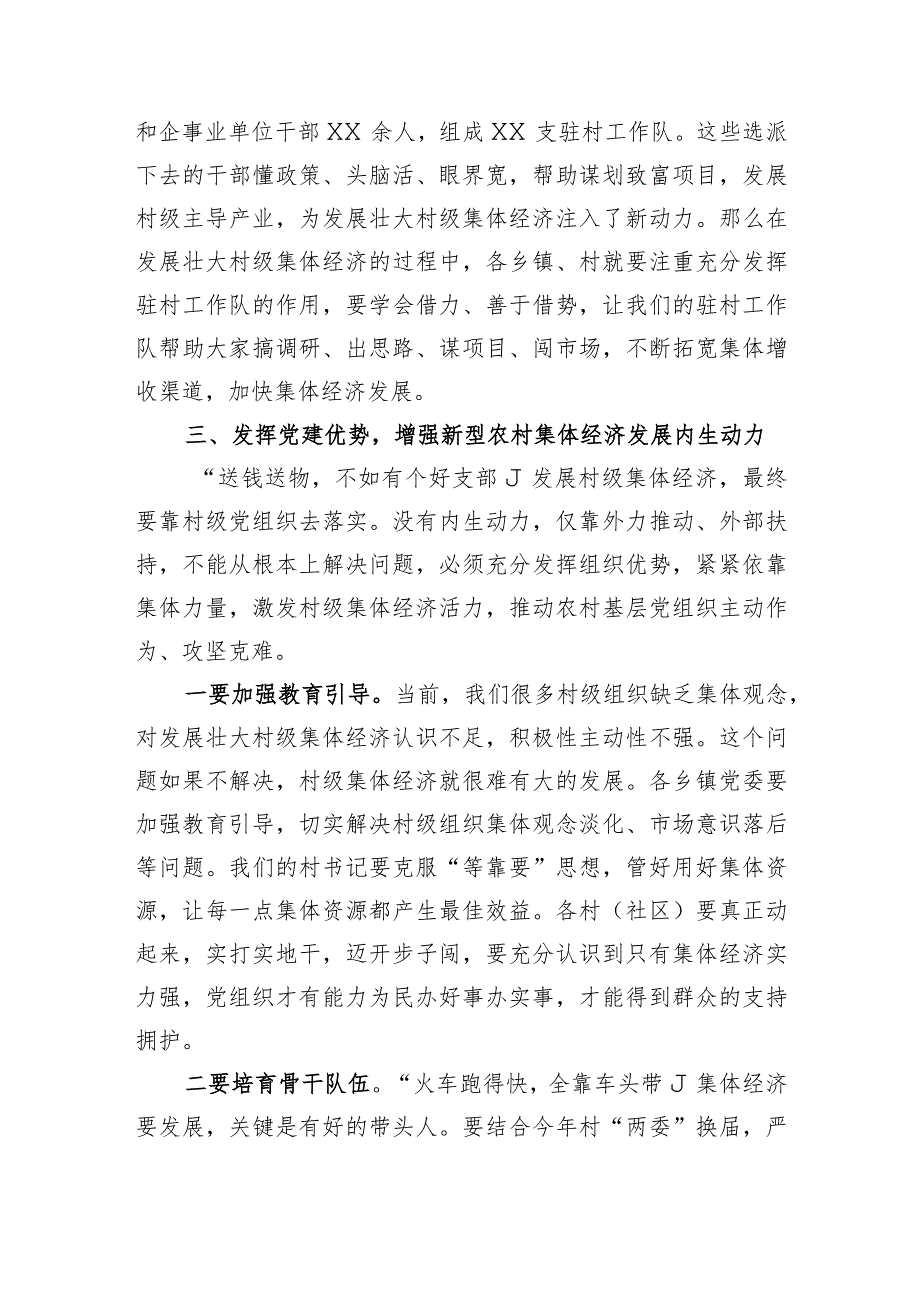 和企事业单位干部 XX 余人，组成 XX 支驻村工作队。这些选派
下去的干部懂政策、头脑活、眼界宽，帮助谋划致富项目，发展
村级主导产业，为发展壮大村级集体经济注入了新动力。那么在
发展壮大村级集体经济的过程中，各乡镇、村就要注重充分发挥
驻村工作队的作用，要学会借力、善于借势，让我们的驻村工作
队帮助大家搞调研、出思路、谋项目、闯市场，不断拓宽集体增
收渠道，加快集体经济发展。
三、发挥党建优势，增强新型农村集体经济发展内生动力
“送钱送物，不如有个好支部 J 发展村级集体经济，最终
要靠村级党组织去落实。没有内生动力，仅靠外力推动、外部扶
持，不能从根本上解决问题，必须充分发挥组织优势，紧紧依靠
集体力量，激发村级集体经济活力，推动农村基层党组织主动作
为、攻坚克难。
一要加强教育引导。当前，我们很多村级组织缺乏集体观念，
对发展壮大村级集体经济认识不足，积极性主动性不强。这个问
题如果不解决，村级集体经济就很难有大的发展。各乡镇党委要
加强教育引导，切实解决村级组织集体观念淡化、市场意识落后
等问题。我们的村书记要克服“等靠要”思想，管好用好集体资
源，让每一点集体资源都产生最佳效益。各村（社区）要真正动
起来，实打实地干，迈开步子闯，要充分认识到只有集体经济实
力强，党组织才有能力为民办好事办实事，才能得到群众的支持
拥护。
二要培育骨干队伍。“火车跑得快，全靠车头带 J 集体经济
要发展，关键是有好的带头人。要结合今年村“两委”换届，严